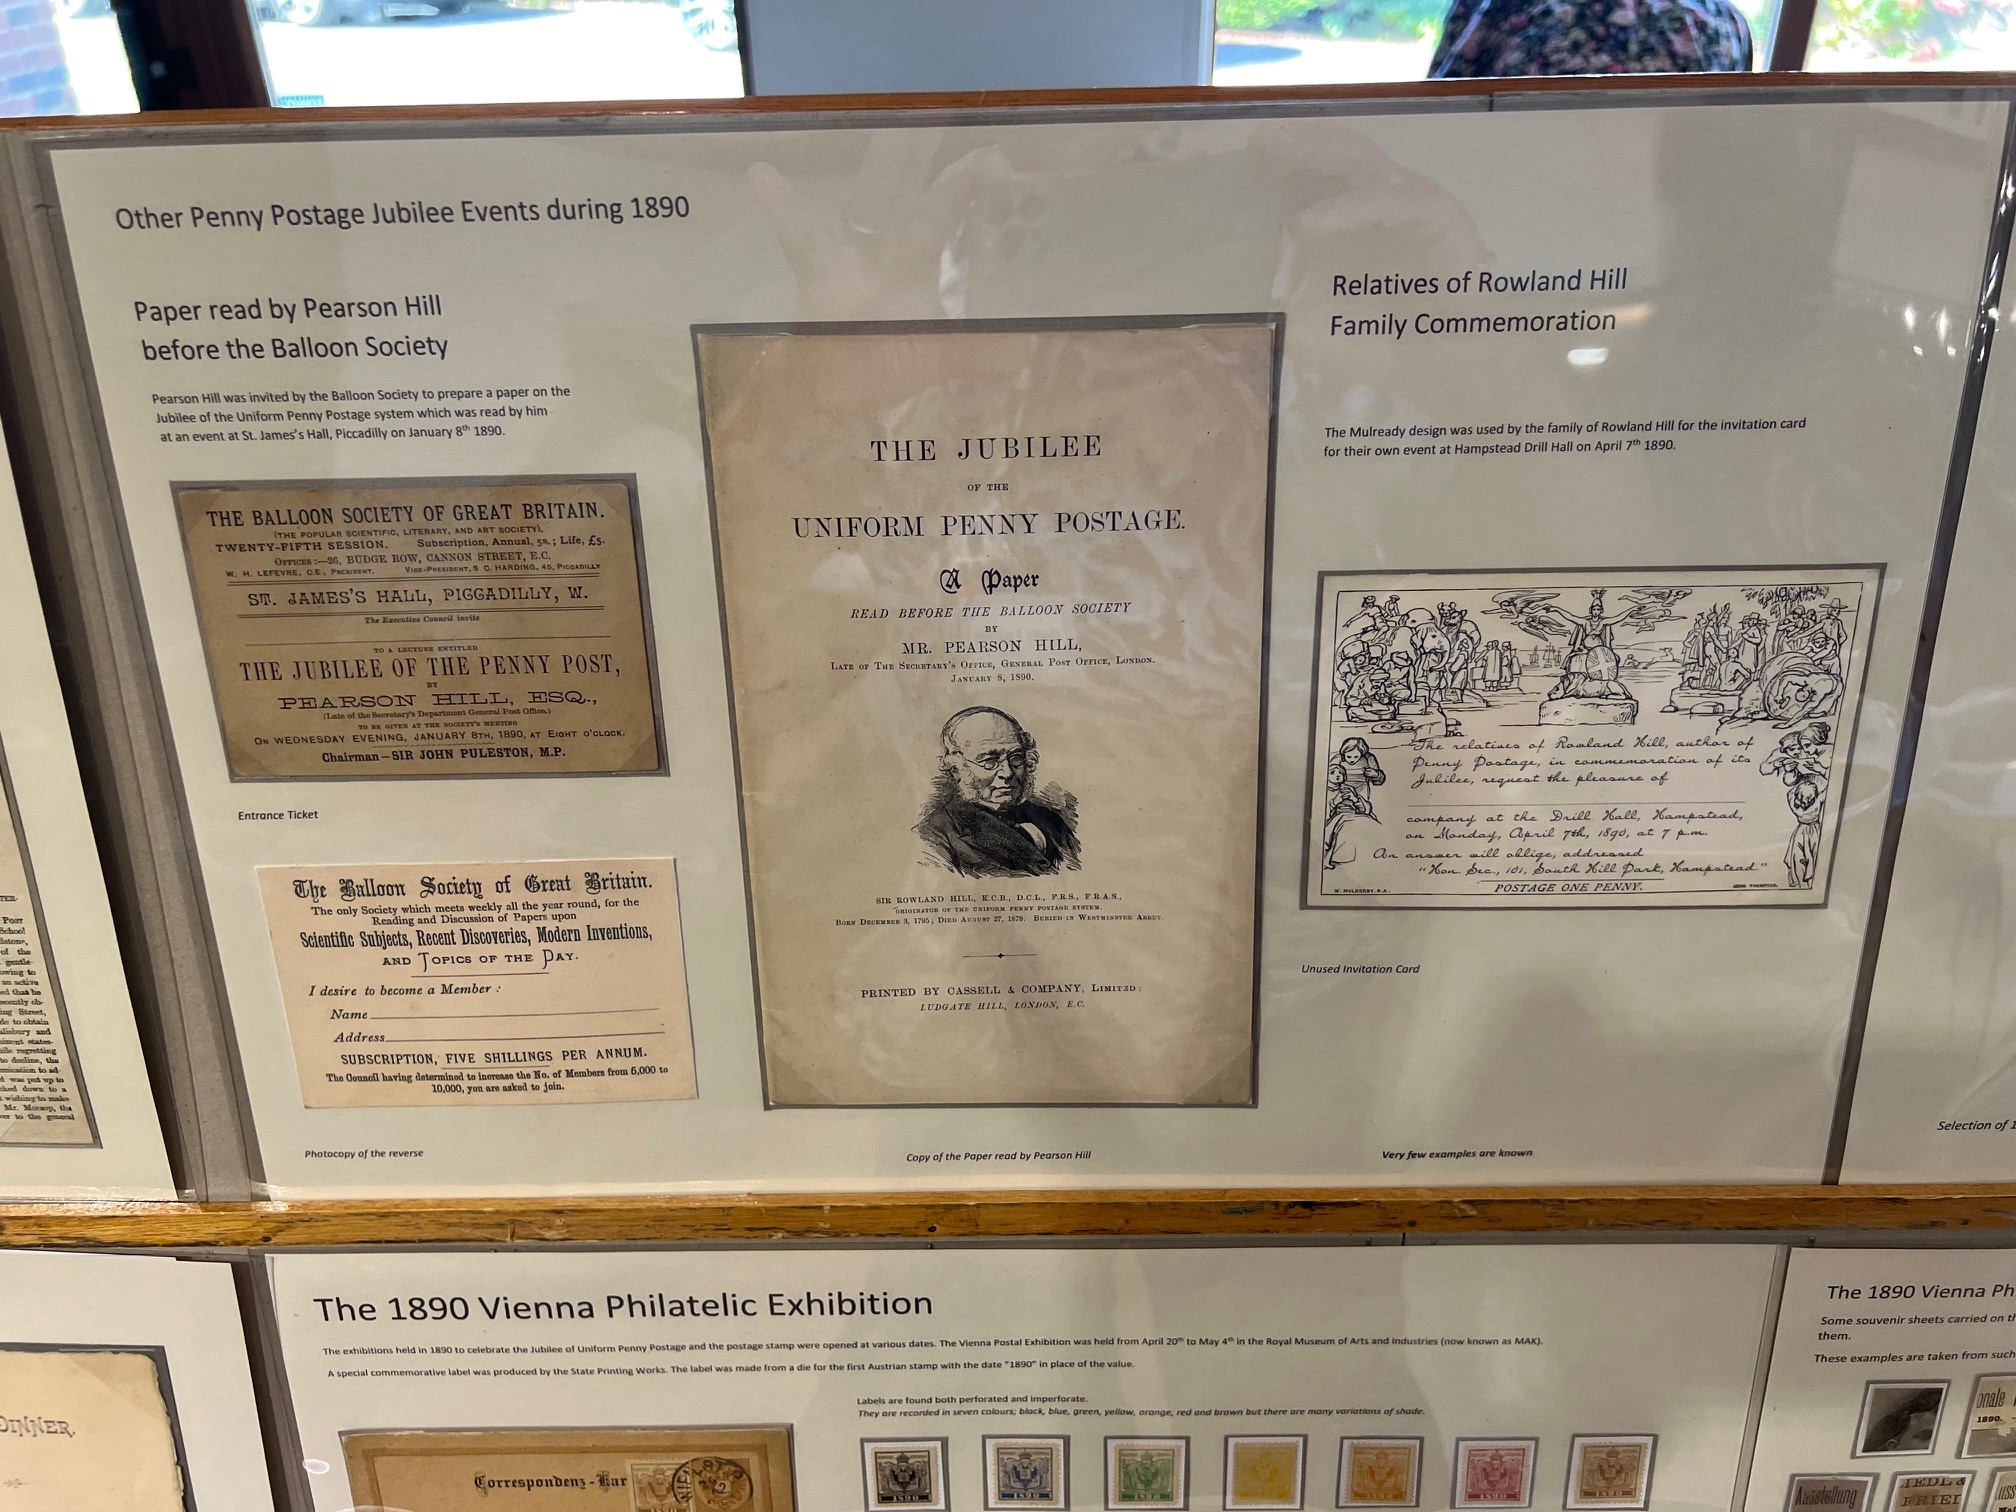 Other Penny Postage Jubilee Events during 1890
Paper read by Pearson Hill
before the Balloon Society
Pearson Hill was invited by the Balloon Society to prepare a paper on the
Jubilee of the Uniform Penny Postage system which was read by him
at an event at St. James's Hall, Piccadilly on January 8th 1890.
THE BALLOON SOCIETY OF GREAT BRITAIN.
(THE POPULAR SCIENTIFIC, LITERARY, AND ART SOCIETY).
TWENTY-FIFTH SESSION. Subscription, Annual, 5s.; Life, £5.
OFFICES:—26, BUDGE ROW, CANNON STREET, E.C.
W. H. LEFEVRE, C.E., PRESIDENT. VICE-PRESIDENT, S C. HARDING, 45, PICCADILLY
ST. JAMES'S HALL, PICCADILLY, W.
The Executive Council invite
TO A LECTURE ENTITLED
THE JUBILEE OF THE PENNY POST,
BY
PEARSON HILL, ESQ.,
(Late of the Secretary's Department General Post Office.)
TO BE GIVEN AT THE SOCIETY'S MEETING
ON WEDNESDAY EVENING, JANUARY 8TH, 1890, AT EIGHT O'CLOCK.
Chairman—SIR JOHN PULESTON, M.P.
Entrance Ticket
The Balloon Society of Great Britain.
The only Society which meets weekly all the year round, for the
Reading and Discussion of Papers upon
Scientific Subjects, Recent Discoveries, Modern Inventions,
AND TOPICS OF THE DAY.
I desire to become a Member:
Name
Address
SUBSCRIPTION, FIVE SHILLINGS PER ANNUM.
The Council having determined to increase the No. of Members from 5,000 to
10,000, you are asked to join.
Photocopy of the reverse
THE JUBILEE
OF THE
UNIFORM PENNY POSTAGE.
A Paper
READ BEFORE THE BALLOON SOCIETY
BY
MR. PEARSON HILL,
LATE OF THE SECRETARY'S OFFICE, GENERAL POST OFFICE, LONDON.
JANUARY 8, 1890.
SIR ROWLAND HILL, K.C.B., D.C.L., F.R.S., F.R.A.S.,
ORIGINATOR OF THE UNIFORM PENNY POSTAGE SYSTEM.
BORN DECEMBER 3, 1795; DIED AUGUST 27, 1879. BURIED IN WESTMINSTER ABBEY.
PRINTED BY CASSELL & COMPANY, LIMITED:
LUDGATE HILL, LONDON, E.C.
Copy of the Paper read by Pearson Hill
Relatives of Rowland Hill
Family Commemoration
The Mulready design was used by the family of Rowland Hill for the invitation card
for their own event at Hampstead Drill Hall on April 7th 1890.
The relatives of Rowland Hill, author of
Penny Postage, in commemoration of its
Jubilee, request the pleasure of
company at the Drill Hall, Hampstead,
on Monday, April 7th, 1890, at 7 p.m.
An answer will oblige, addressed
"Hon. Sec., 101, South Hill Park, Hampstead"
W. MULREADY. R.A. POSTAGE ONE PENNY. JOHN THOMPSON.
Unused Invitation Card
Very few examples are known
Selection of 1
Post
School
of the
gentle-
owing to
an active
ed that he
cently ob-
ing Street,
de to obtain
alisbury and
inent states-
ile regretting
to decline, the
d was put up to
ched down to a
wishing to make
Mr. Morsop, the
ver to the general
DINNER.
The 1890 Vienna Philatelic Exhibition
The exhibitions held in 1890 to celebrate the Jubilee of Uniform Penny Postage and the postage stamp were opened at various dates. The Vienna Postal Exhibition was held from April 20th to May 4th in the Royal Museum of Arts and Industries (now known as MAK).
A special commemorative label was produced by the State Printing Works. The label was made from a die for the first Austrian stamp with the date "1890" in place of the value.
Labels are found both perforated and imperforate.
They are recorded in seven colours; black, blue, green, yellow, orange, red and brown but there are many variations of shade.
Correspondenz-Kar
1890 1890 1890 1890 1890 1890 1890
The 1890 Vienna Ph
Some souvenir sheets carried on th
them.
These examples are taken from such
onale
1890.
Ausstellung
IEDL &
FRIED